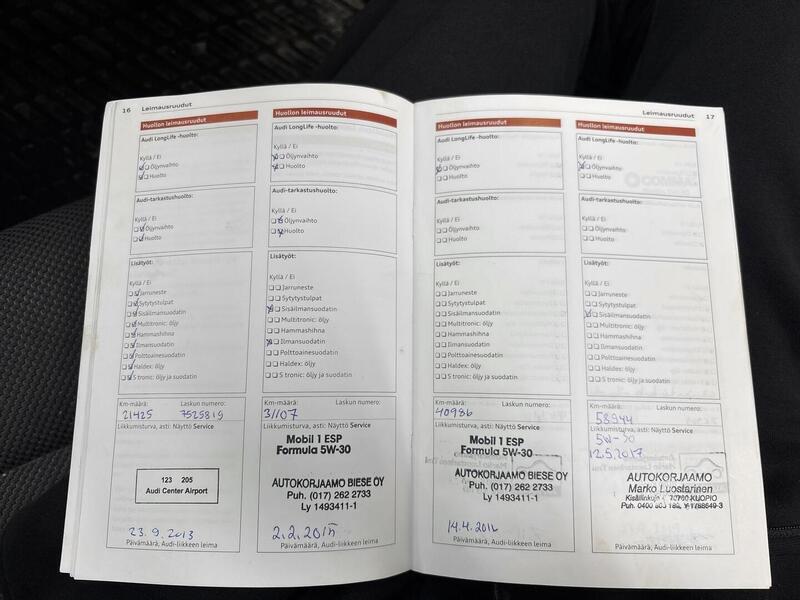 16 Leimausruudut
Huollon leimausruudut
Audi LongLife -huolto:
Kyllä / Ei
Öljynvaihto
Huolto
Audi-tarkastushuolto:
Kyllä / Ei
Öljynvaihto
Huolto
Lisätyöt:
Kyllä / Ei
Jarruneste
Sytytystulpat
Sisäilmansuodatin
Multitronic: öljy
Hammashihna
Ilmansuodatin
Polttoainesuodatin
Haldex: öljy
S tronic: öljy ja suodatin
Km-määrä: Laskun numero:
21425 7525819
Liikkumisturva, asti: Näyttö Service
123 205
Audi Center Airport
23.9.2013
Päivämäärä, Audi-liikkeen leima
Huollon leimausruudut
Audi LongLife -huolto:
Kyllä / Ei
Öljynvaihto
Huolto
Audi-tarkastushuolto:
Kyllä / Ei
Öljynvaihto
Huolto
Lisätyöt:
Kyllä / Ei
Jarruneste
Sytytystulpat
Sisäilmansuodatin
Multitronic: öljy
Hammashihna
Ilmansuodatin
Polttoainesuodatin
Haldex: öljy
S tronic: öljy ja suodatin
Km-määrä: Laskun numero:
31107
Liikkumisturva, asti: Näyttö Service
Mobil 1 ESP
Formula 5W-30
AUTOKORJAAMO BIESE OY
Puh. (017) 262 2733
Ly 1493411-1
2.2.2015
Päivämäärä, Audi-liikkeen leima
Leimausruudut 17
Huollon leimausruudut
Audi LongLife -huolto:
Kyllä / Ei
Öljynvaihto
Huolto
Audi-tarkastushuolto:
Kyllä / Ei
Öljynvaihto
Huolto
Lisätyöt:
Kyllä / Ei
Jarruneste
Sytytystulpat
Sisäilmansuodatin
Multitronic: öljy
Hammashihna
Ilmansuodatin
Polttoainesuodatin
Haldex: öljy
S tronic: öljy ja suodatin
Km-määrä: Laskun numero:
40986
Liikkumisturva, asti: Näyttö Service
Mobil 1 ESP
Formula 5W-30
AUTOKORJAAMO BIESE OY
Puh. (017) 262 2733
Ly 1493411-1
Päivämäärä, Audi-liikkeen leima
Huollon leimausruudut
Audi LongLife -huolto:
Kyllä / Ei
Öljynvaihto
Huolto
Audi-tarkastushuolto:
Kyllä / Ei
Öljynvaihto
Huolto
Lisätyöt:
Kyllä / Ei
Jarruneste
Sytytystulpat
Sisäilmansuodatin
Multitronic: öljy
Hammashihna
Ilmansuodatin
Polttoainesuodatin
Haldex: öljy
S tronic: öljy ja suodatin
Km-määrä: Laskun numero:
58944
5W-30
Liikkumisturva, asti: Näyttö Service
12.5.2017
AUTOKORJAAMO
Marko Luostarinen
70700 KUOPIO
Puh. 0400
Päivämäärä, Audi-liikkeen leima